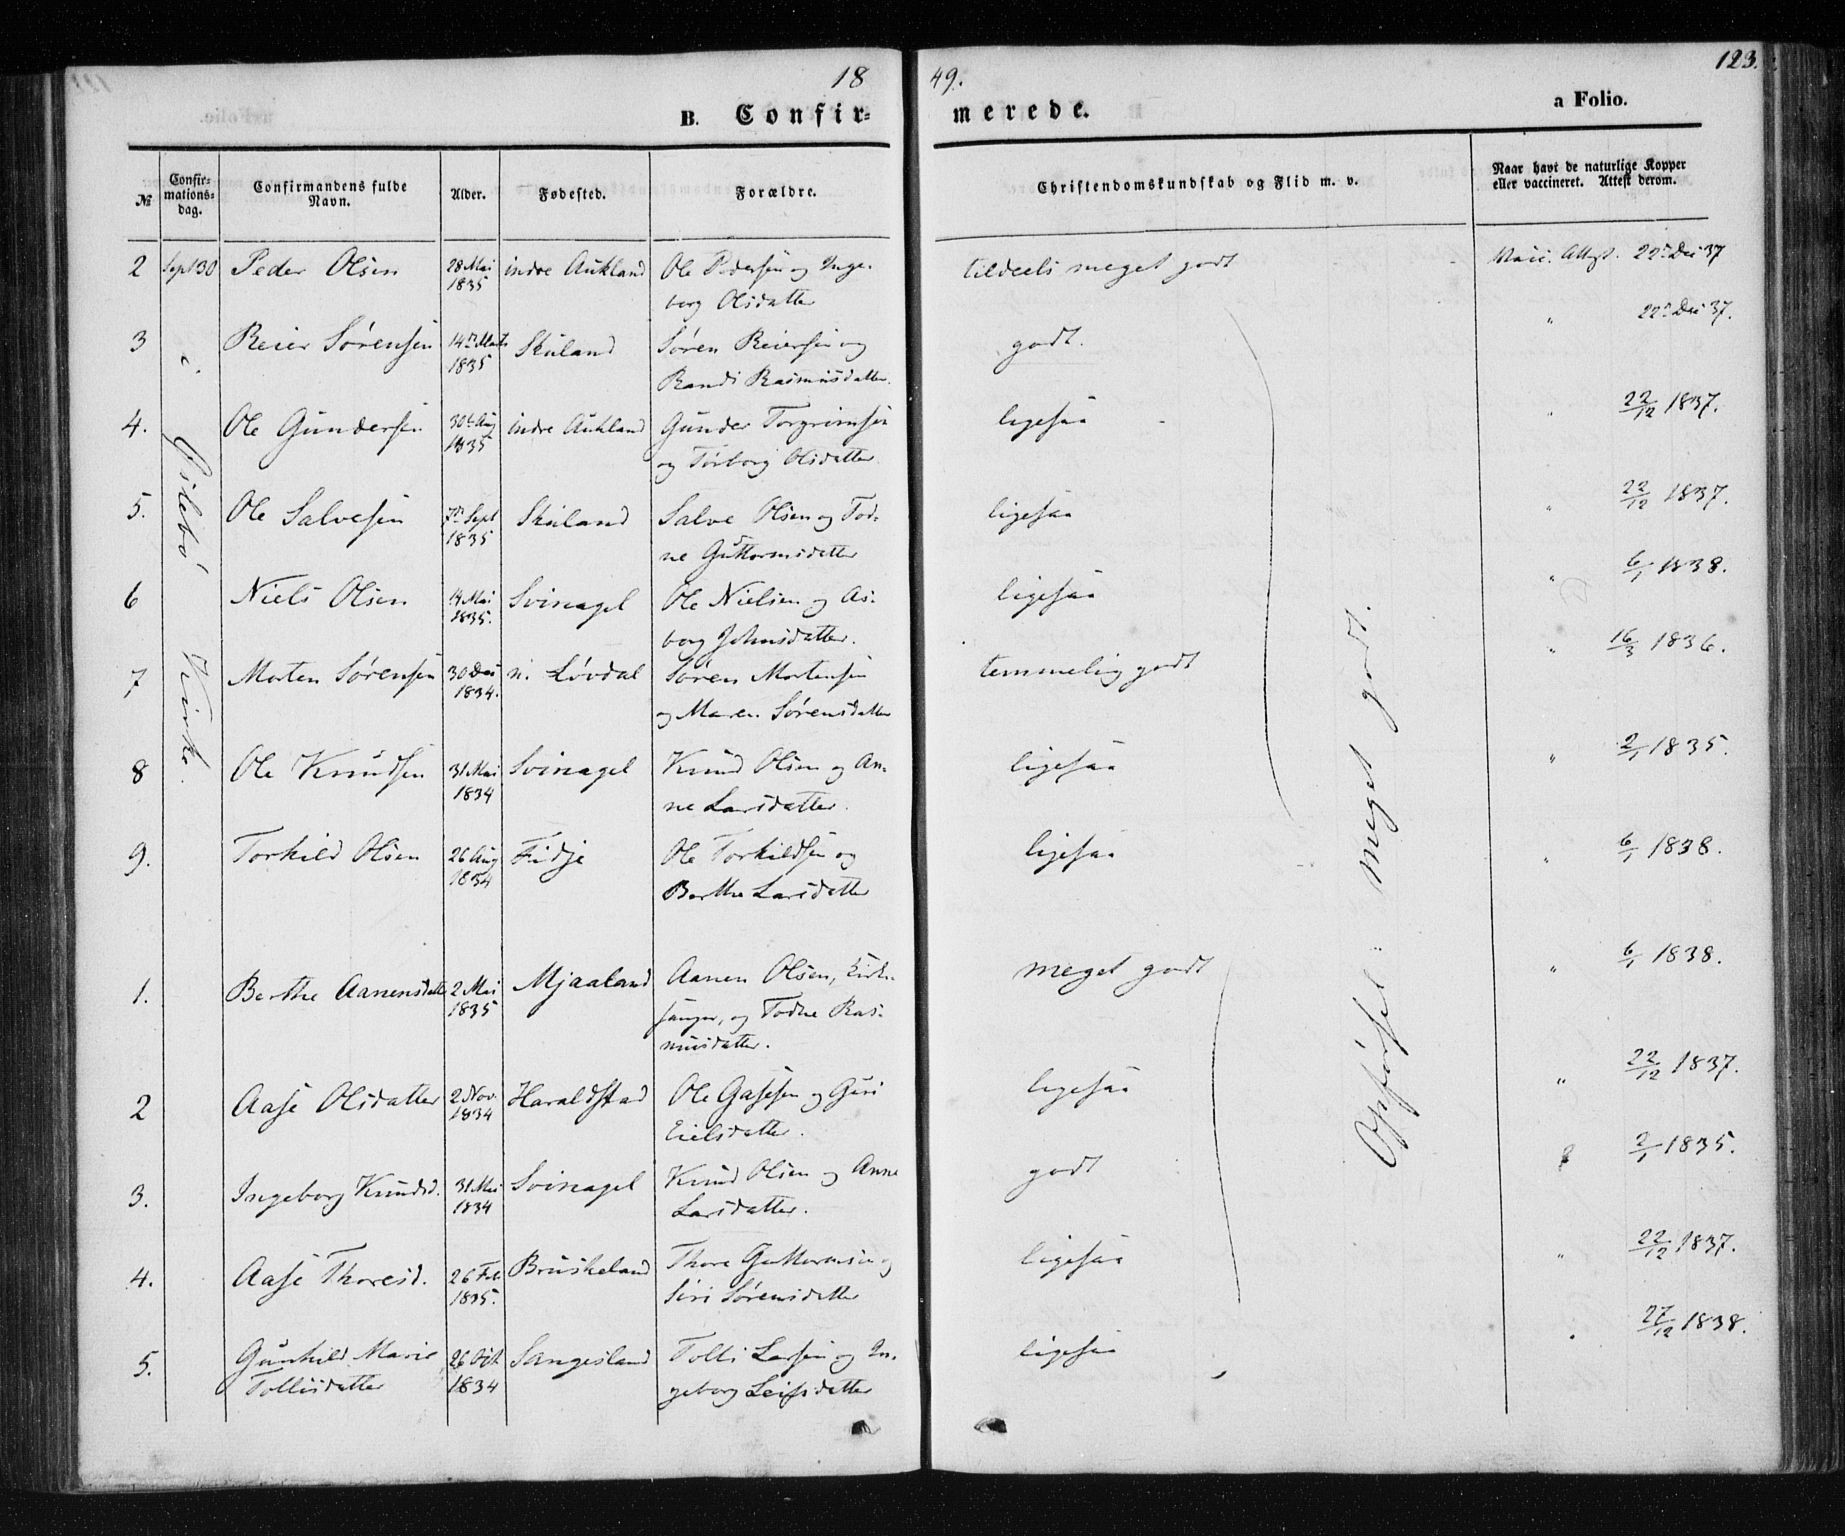 18 49. 123.
B. Confirmerede. a Folio.
№ Confirmationsdag. Confirmandens fulde Navn. Alder. Fødested. Forældre. Christendomskundskab og Flid m. v. Naar havt de naturlige Kopper eller vaccineret. Attest derom.
2 Sept 30 Peder Olsen 28 Mai 1835 indre Aukland Ole Pedersen og Inge- tildeels meget godt Vacc. Attest. 22n Dec 37
borg Olsdatter
3 Reier Sørensen 14de Marts 1835 Skuland Søren Reiersen og godt. " 22n Dec 37.
Randi Rasmusdatter.
4. Ole Gundersen 30te Aug 1835 indre Aukland Gunder Torgrimsen ligesaa " 22/12 1837.
og Torborg Olsdatter
5. Ole Salvesen 7n Sept 1835 Skuland Salve Olsen og Tod- ligesaa " 22/12 1837.
ne Guttormsdatter
6 Niels Olsen 14 Mai 1835. Svinagel Ole Nielsen og As- ligesaa " 6/1 1838.
borg Johnsdatter.
7 Morten Sørensen 30 Dec 1834. n. Løvdal Søren Mortensen temmelig godt " 16/3 1836.
og Maren Sørensdatter
8 Ole Knudsen 31 Mai 1834 Svinagel Knud Olsen og An- ligesaa " 2/1 1835.
ne Larsdatter.
9. Torkild Olsen 26 Aug 1834 Fidje Ole Torkildsen og ligesaa " 6/1 1838.
Berthe Larsdatter
Øslebø Kirke.
1. Berthe Aanensdatter 2 Mai 1835 Mjaaland Aanen Olsen, Kirke- meget godt " 6/1 1838.
sanger, og Todne Ras-
musdatter.
2 Aase Olsdatter 2 Nov. 1834 Haraldstad Ole Gasesen og Guri ligesaa " 22/12 1837.
Eielsdatter.
3. Ingeborg Knudsd. 31 Mai 1834 Svinagel Knud Olsen og Anne godt " 2/1 1835.
Larsdatter.
4. Aase Thoresd. 26 Feb 1835. Bruskeland Thore Guttormsen og ligesaa " 22/12 1837.
Siri Sørensdatter
5. Gunhild Marie 26 Oct 1834 Sangesland Tolli Larsen og In- ligesaa " 27/12 1838.
Tollisdatter geborg Leifsdatter
Opførsel: meget godt.